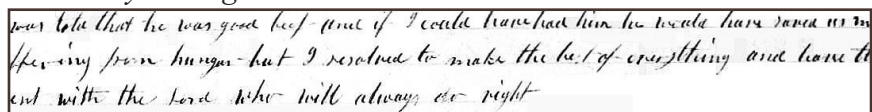 was told that he was good beef and if I could have had him he would have saved us m
ffering from hunger but I resolved to make the best of everything and leave th
ent with the Lord who will always do right